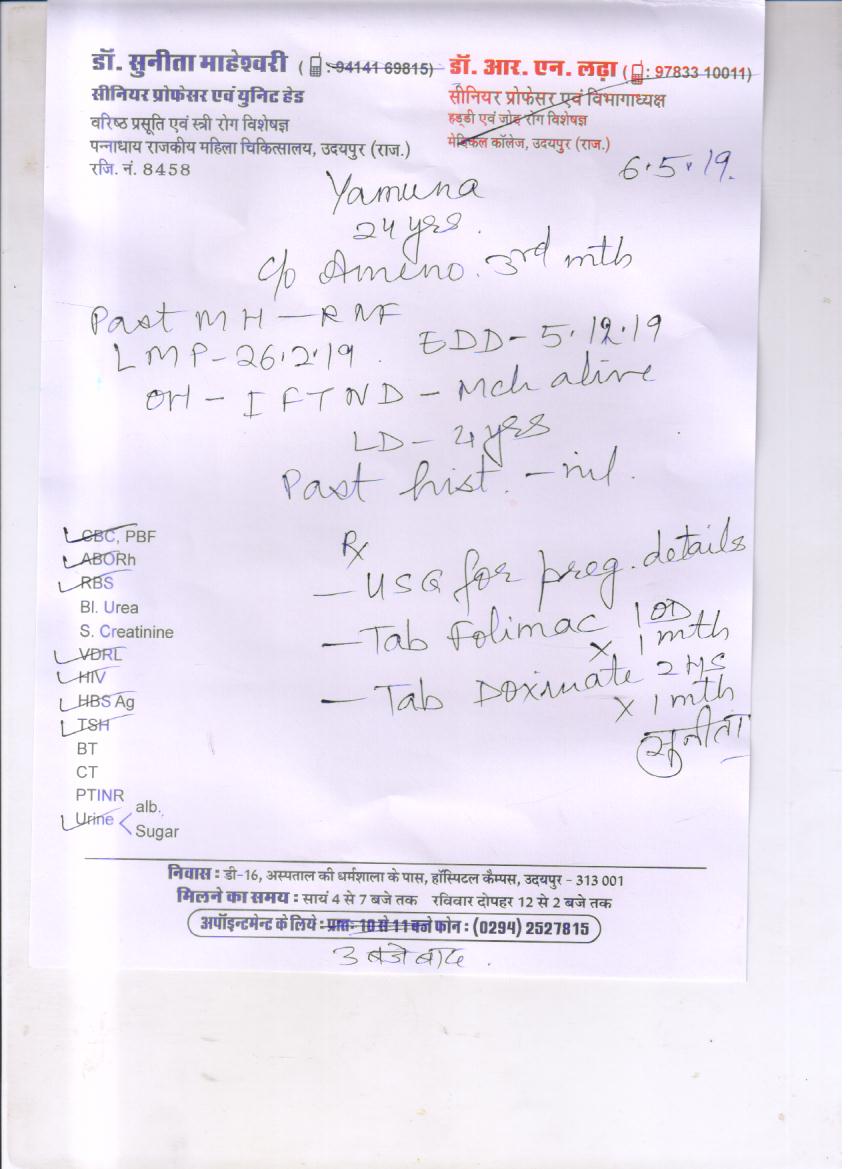 डॉ. सुनीता माहेश्वरी ( : 94141 69815)
सीनियर प्रोफेसर एवं युनिट हेड
वरिष्ठ प्रसूति एवं स्त्री रोग विशेषज्ञ
पन्नाधाय राजकीय महिला चिकित्सालय, उदयपुर (राज.)
रजि. नं. 8458
डॉ. आर. एन. लढ़ा ( : 97833 10011)
सीनियर प्रोफेसर एवं विभागाध्यक्ष
हड्डी एवं जोड़ रोग विशेषज्ञ
मेडिकल कॉलेज, उदयपुर (राज.)
6.5.19.
Yamuna
24 yrs.
c/o Ameno. 3rd mth
Past MH - RNF
LMP - 26.2.19. EDD - 5.12.19
OH - I FTND - Mch alive
LD - 4 yrs
Past hist. - nil.
CBC, PBF
ABORh
RBS
Bl. Urea
S. Creatinine
VDRL
HIV
HBS Ag
TSH
BT
CT
PTINR
Urine < alb.
Sugar
Rx
- USG for preg. details
- Tab Folimac 1 OD
x 1 mth
- Tab Doxinate 2 HS
x 1 mth
सुनीता
निवास : डी-16, अस्पताल की धर्मशाला के पास, हॉस्पिटल कैम्पस, उदयपुर - 313 001
मिलने का समय : सायं 4 से 7 बजे तक रविवार दोपहर 12 से 2 बजे तक
अपॉइन्टमेन्ट के लिये : प्रातः 10 से 11 बजे फोन : (0294) 2527815
3 बजे बाद .